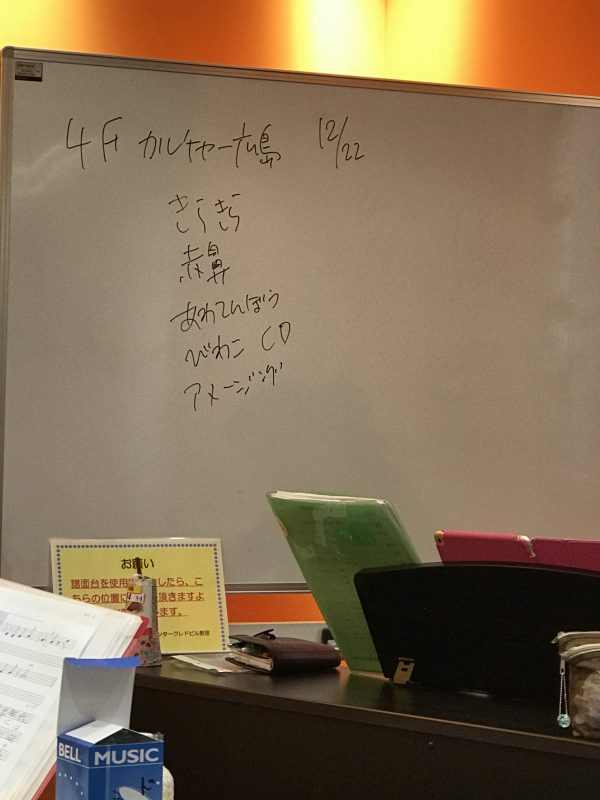 4F カルチャー広島 12/22
きらきら
赤鼻
あわてんぼう
びわこ CD
アメージング
お願い
譜面台を使用
したら、こ
ちらの位置に
頂きますよ
します。
ンターグレドビル教室
BELL MUSIC
ド